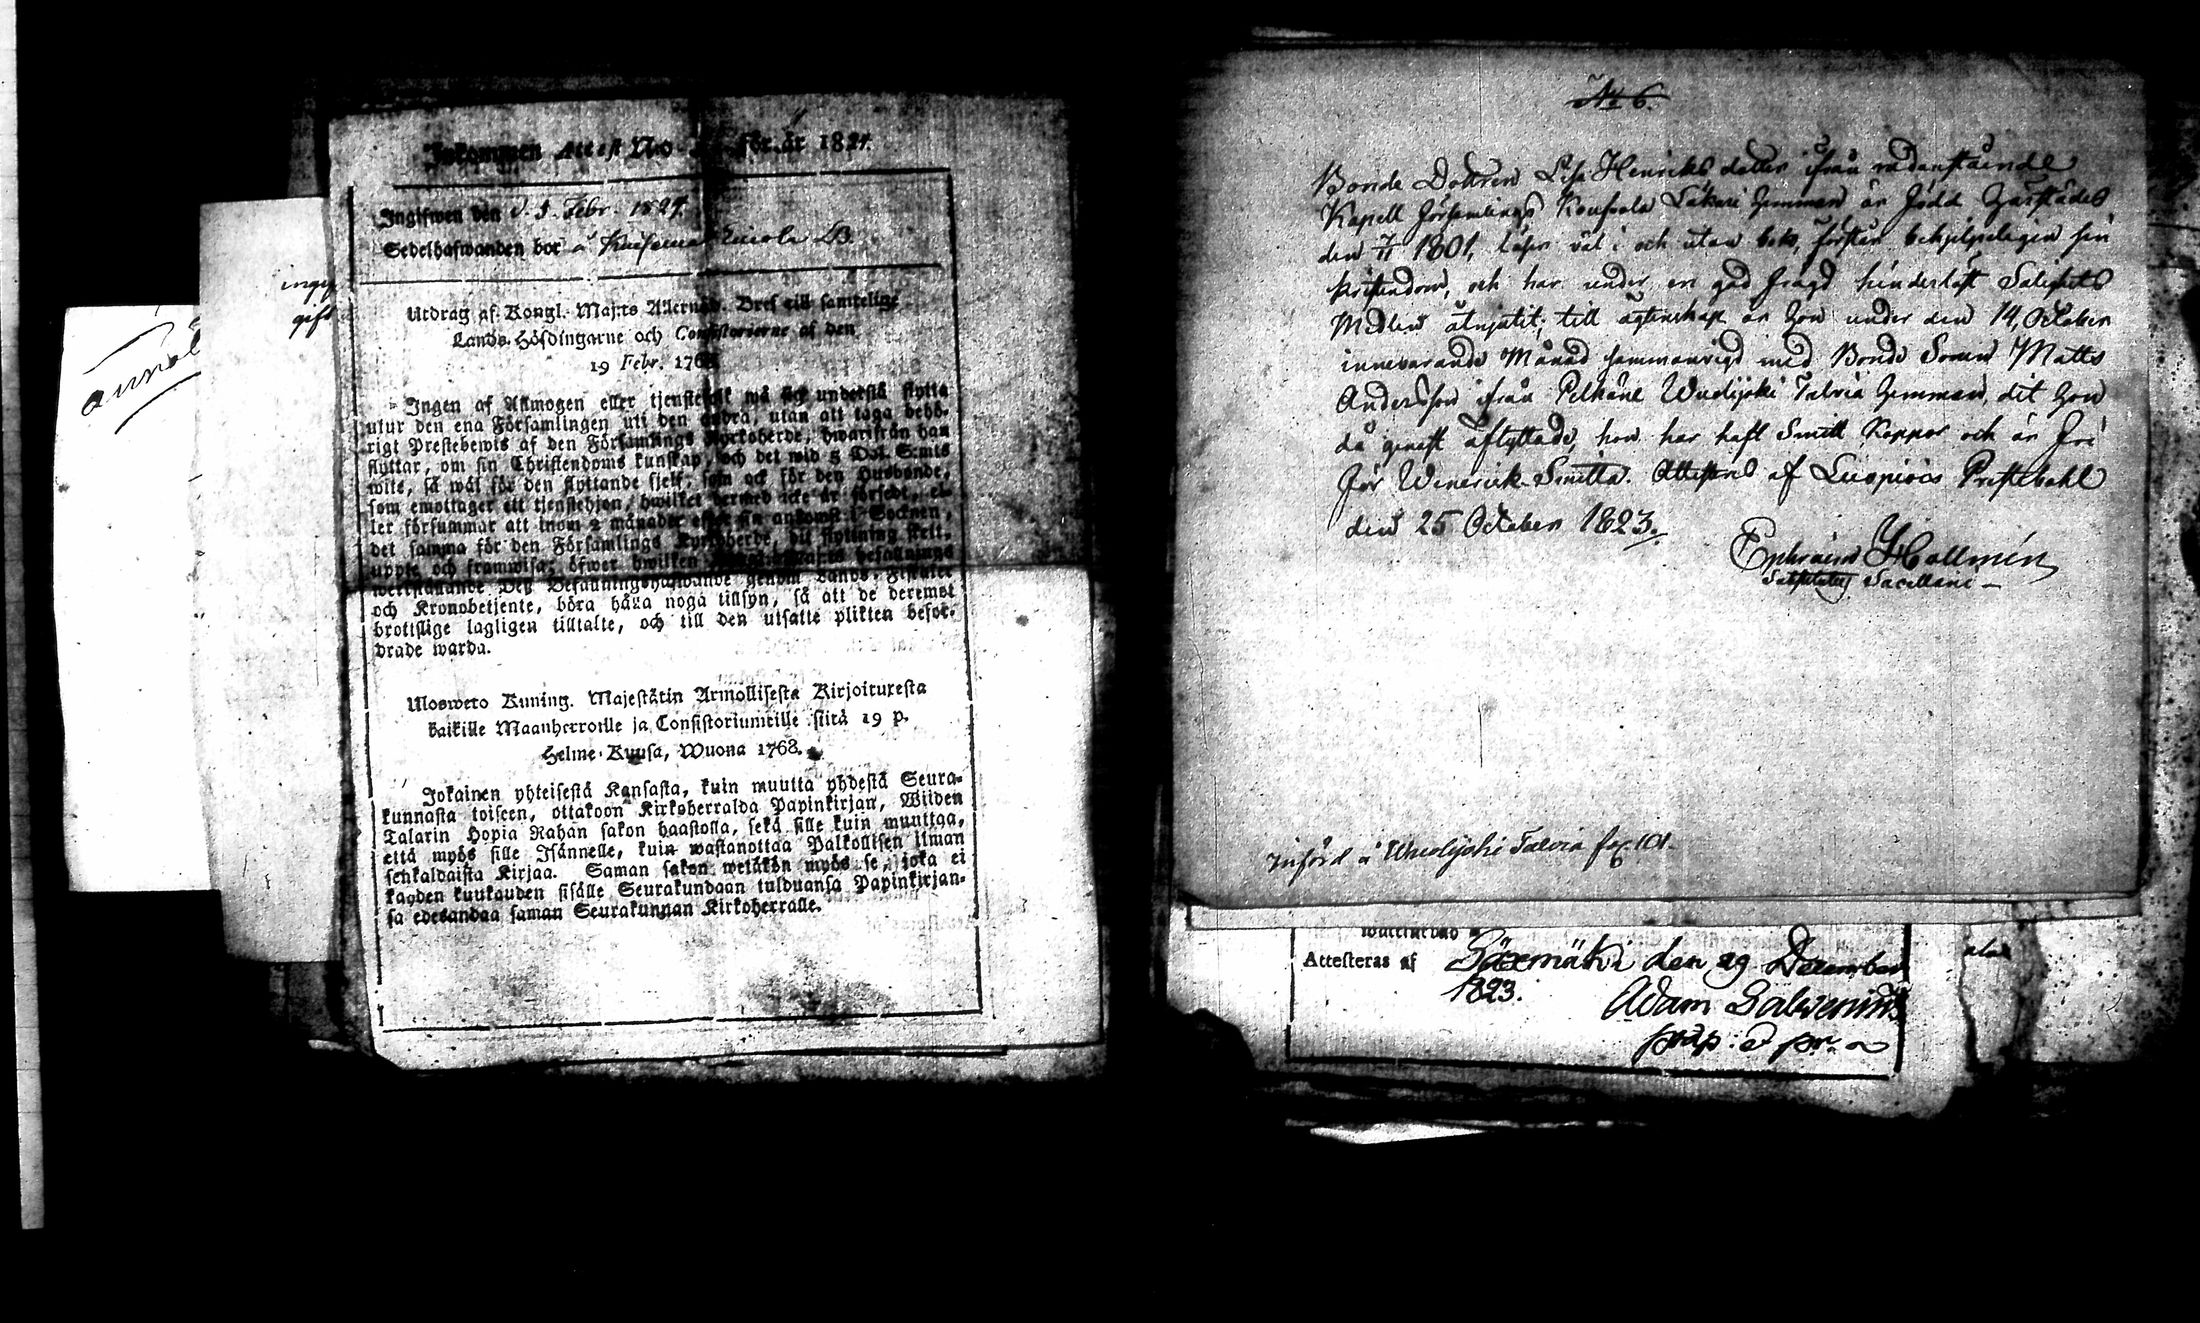 Inkommen Attest No för år 1824.
Ingifwen den d. 5. Febr. 1824.
Sedelhafwanden bor å
Utdrag af Kongl. Maj:ts Allernåd. Bref till samtelige
Lands-Höfdingarne och Consistorierne af den
19 Febr. 1768
Ingen af Allmogen eller tjenstefolk må sig understå flytta
utur den ena Församlingen uti den andra, utan att taga behö-
rigt Prestebewis af den Församlings Kyrkoherde, hwarifrån han
flyttar, om sin Christendoms kunskap, och det wid 5 Dal. S:mts
wite, så wäl för den flyttande sjelf, som ock för den Husbonde,
som emottager ett tjenstehjon, hwilket dermed icke är försedt, el-
ler försummar att inom 2 månader efter sin ankomst i Socknen,
det samma för den Församlings Kyrkoherde, dit flyttning skett,
uppte och framwisa; öfwer hwilken befallnings
werkställande Deß Befallningshafwande genom Lands-Fiskaler
och Kronobetjente, böra hålla noga tillsyn, så att de deremot
brottslige lagligen tilltalte, och till den utsatte plikten befor-
drade warda.
Ulosweto Kuning. Majestätin Armollisesta Kirjoituxesta
kaikille Maanherroille ja Consistoriumeille siitä 19 p.
Helme-Kuusa, Wuona 1768.
Jokainen yhteisestä Kansasta, kuin muutta yhdestä Seura-
kunnasta toiseen, ottakoon Kirkoherralda Papinkirjan, Wiiden
Talarin Hopia Rahan sakon haastolla, sekä sille kuin muuttaa,
että myös sille Isännelle, kuin wastanottaa Palkollisen ilman
senkaldaista Kirjaa. Saman sakon wetäkön myös se, joka ei
kahden kuukauden sisälle Seurakundaan tulduansa Papinkirjan-
sa edesandaa saman Seurakunnan Kirkoherralle.
No 6.
Bonde Dottren Lisa Henriks dotter ifrån nedanstående
Kapell Församlings Hemman är född härstädes
den 1801, läser väl i och utan bok, förstår behjelpeligen sin
kristendom, och har under en god frägd hinderslöst Salighets
Medlen åtnjutit; till ägtenskap är hon under den 14, October
innevarande Månad sammanvigd med Bonde Sonen Matts
Andersson ifrån Pelkäne Wuolijoki Talvia Hemman, dit hon
då genast aflyttade, hon har haft Smitt Koppor och är fri
för Venerisk Smitta. Attesteras af Luopiois Prestebohl
den 25 October 1823.
Ephraim Hallmén
Sacellani
Införd å Wuolijoki Talvia fog. 101.
Attesteras af Sääxmäki den 29 December
1823.
Adam Salvenius